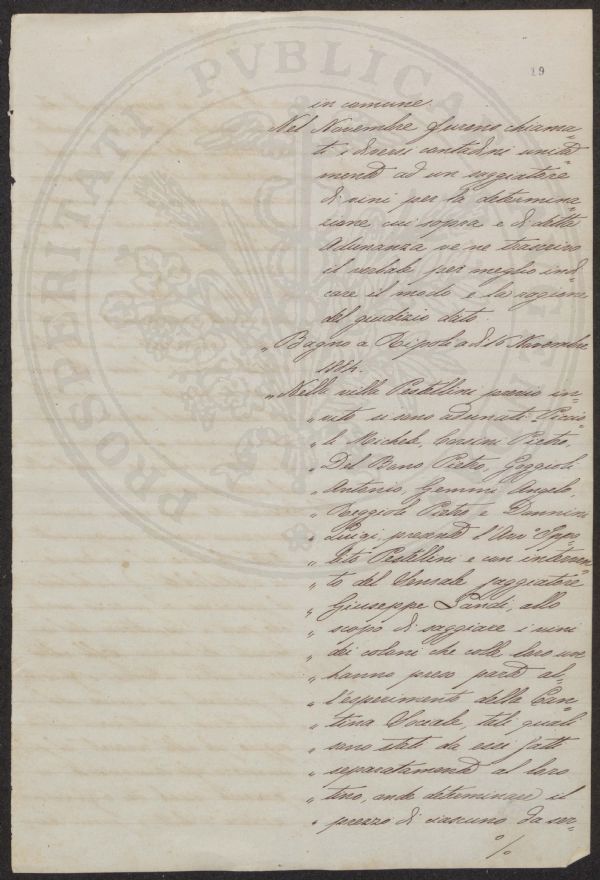 19
in comune.
Nel Novembre furono chiama-
ti i diversi contadini unita-
mente ad un saggiatore
di vini per la determina-
zione cui sopra e di detta
Adunanza ve ne trascrivo
il verbale per meglio indi-
care il modo e la ragione
del giudizio dato.
„ Bagno a Ripoli a dì 16 Novembre
1884.
„ Nella villa Pestellini previo in-
„ vito si sono adunati:
„ li Michele, Corsini Pietro,
„ Del Bono Pietro, Goggioli
„ Antonio, Gemmi Angelo,
„ Reggioli Pietro e Dannini
„ Luigi, presente l'Avv.º Ippo-
„ lito Pestellini e con interven-
„ to del Sensale saggiatore
„ Giuseppe Landi, allo
„ scopo di saggiare i vini
„ dei coloni che colle loro uve
„ hanno preso parte al-
„ l'esperimento della Can-
„ tina Sociale, tali quali
„ sono stati da essi fatti
„ separatamente al loro
„ tino, onde determinare il
„ prezzo di ciascuno da ser-
%
PROSPERITATI PVBLICAE